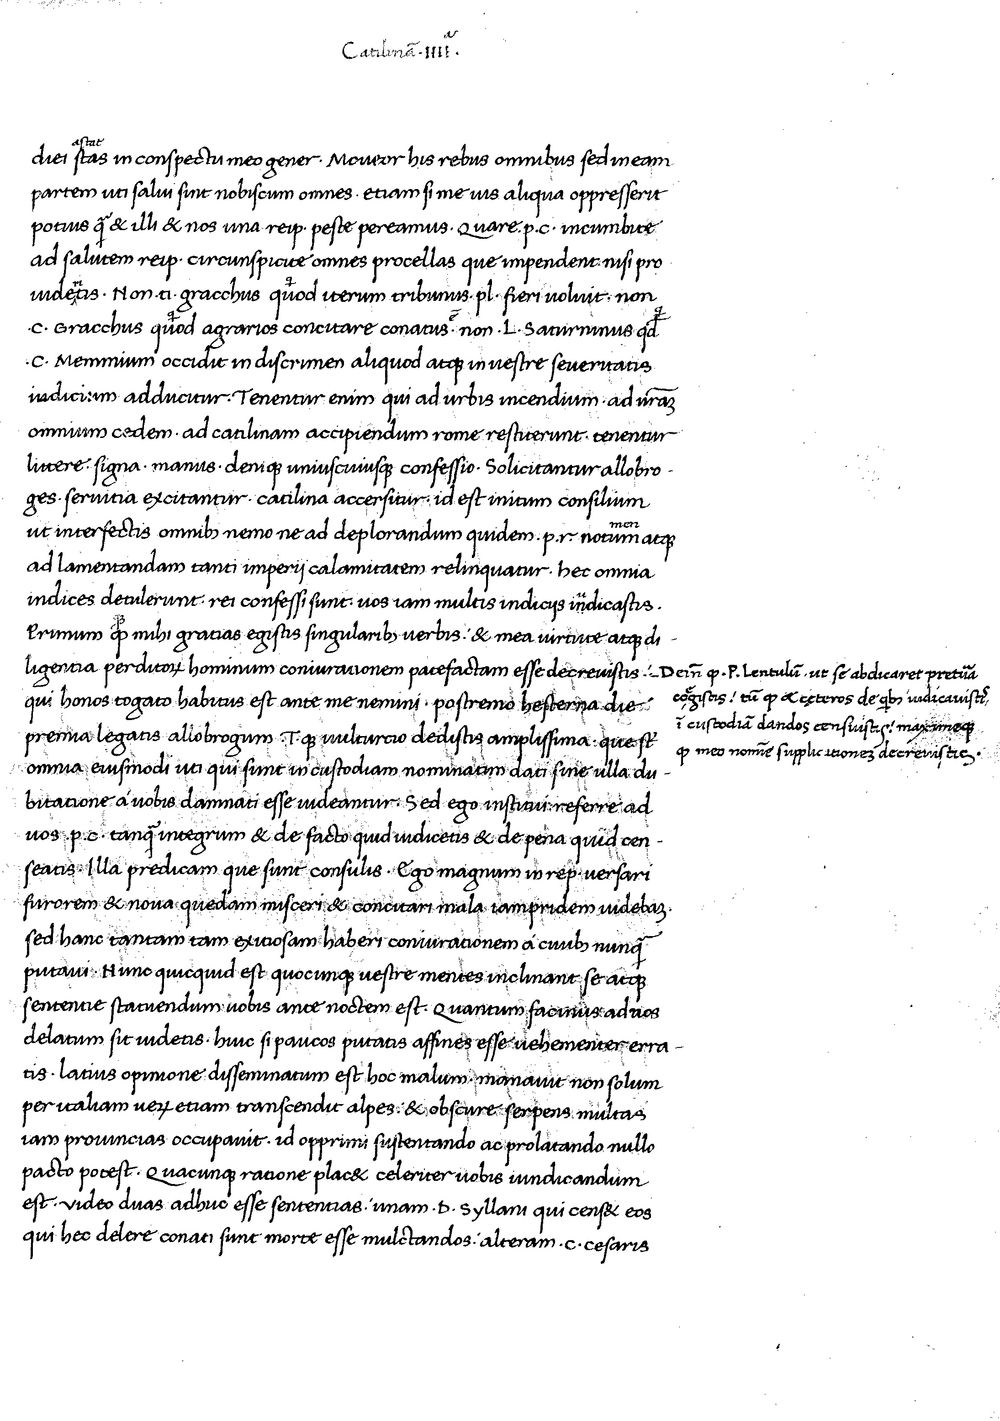 Catilinā · IIII^a ·
astat
diei stas in conspectu meo gener · Moueor his rebus omnibus sed in eam
partem uti salui sint nobiscum omnes · etiam si me uis aliqua oppresserit
potius q̄ & illi & nos una reip · peste pereamus · Quare · p · c · incumbite
ad salutem reip · circunspicite omnes procellas que impendent · nisi pro
uidetis · Non · ti · gracchus quod iterum tribunus · pl · fieri uoluit · non
· C · Gracchus quod agrarios concitare conatus · non · L · Saturninus qd
· C · Memmium occidit in discrimen aliquod atq in uestre seueritatis
iudicium adducitur · Tenentur enim qui ad urbis incendium · ad ur̄aʒ
omnium cedem · ad catilinam accipiendum rome restiterunt · tenentur
littere · signa · manus · deniq uniuscuiusq confessio · Solicitantur allobro -
ges · seruitia excitantur · catilina accersitur · id est initum consilium
ut interfectis omnib nemo ne ad deplorandum quidem · p · r · notum atq
men
ad lamentandam tanti imperij calamitatem relinquatur · hec omnia
indices detulerunt · rei confessi sunt · uos iam multis indicijs iudicastis ·
Primum qp mihi gratias egistis singularib uerbis · & mea uirtute atq di -
ligentia perditoꝝ hominum coniurationem patefactam esse decreuistis ·
Dein̄ qp · P · Lentulū · ut se abdicaret pretura
coegistis / tū qp & ceteros de qb iudicauistis
ī custodiā dandos censuistis / maximeq
qp meo nomīe supplicationeʒ decreuistis ·
qui honos togato habitus est ante me nemini · postremo hesterna die
premia legatis allobrogum · T · q uulturcio dedistis amplissima · que st̄
omnia eiusmodi uti qui sunt in custodiam nominatim dati sine ulla du -
bitatione a uobis damnati esse uideantur · Sed ego institui referre ad
uos · p · c · tanq̄ integrum & de facto quid iudicetis & de pena quid cen -
seatis · Illa predicam que sunt consulis · Ego magnum in rep · uersari
furorem & noua quedam misceri & concitari mala iampridem uidebaʒ ·
sed hanc tantam tam exitiosam haberi coniurationem a ciuib nunq̄
putaui · Nunc quicquid est quocunq uestre mentes inclinant se atq
sententie statuendum uobis ante noctem est · Quantum facinus ad uos
delatum sit uidetis · huic si paucos putatis affines esse uehementer erra -
tis · latius opinione disseminatum est hoc malum · manauit non solum
per italiam ueꝝ etiam transcendit alpes · & obscure serpens multas
iam prouincias occupauit · id opprimi sustentando ac prolatando nullo
pacto potest · Quacunq ratione plac& celeriter uobis iundicandum
est · Video duas adhuc esse sententias · unam · D · Syllani qui cens& eos
qui hec delere conati sunt morte esse mulctandos · alteram · c · cesaris